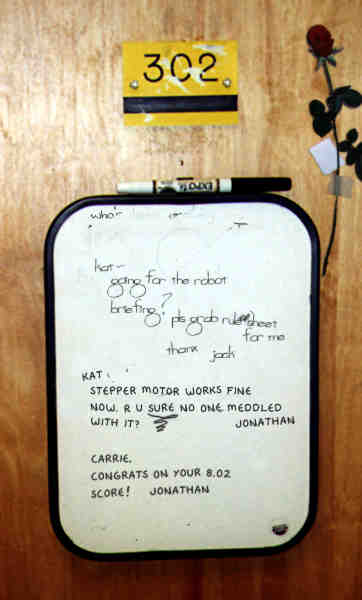 302
EXPO
who's
kat-
going for the robot
briefing? pls grab rule sheet
for me
thanx jack
KAT:
STEPPER MOTOR WORKS FINE
NOW. R U SURE NO ONE MEDDLED
WITH IT? JONATHAN
CARRIE,
CONGRATS ON YOUR 8.02
SCORE! JONATHAN